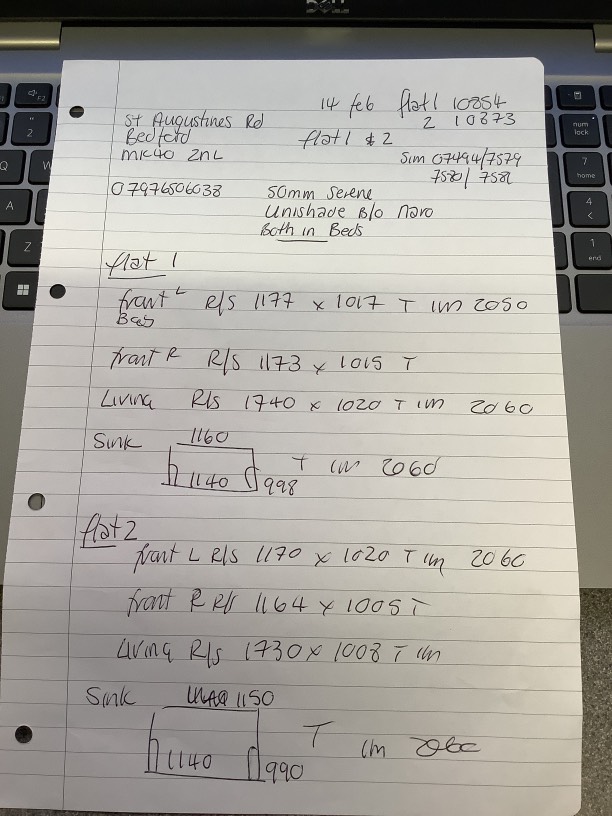 DELL
14 feb flat 1 10854
St Augustines Rd 2 10873
Bedford flat 1 & 2
MK40 2NL Sim 07494/7579
7580/7581
07976506038 50mm Serene
Unishade B/o Naro
Both in Beds
flat 1
front L R/S 1177 x 1017 T im 2050
front R R/S 1173 x 1015 T
Living R/S 1740 x 1020 T im 2060
Sink 1160
T im 2060
1140 998
flat 2
front L R/S 1170 x 1020 T im 2060
front R R/S 1164 x 1005 T
Living R/S 1730 x 1008 T im
Sink 1150
T im 2060
1140 990